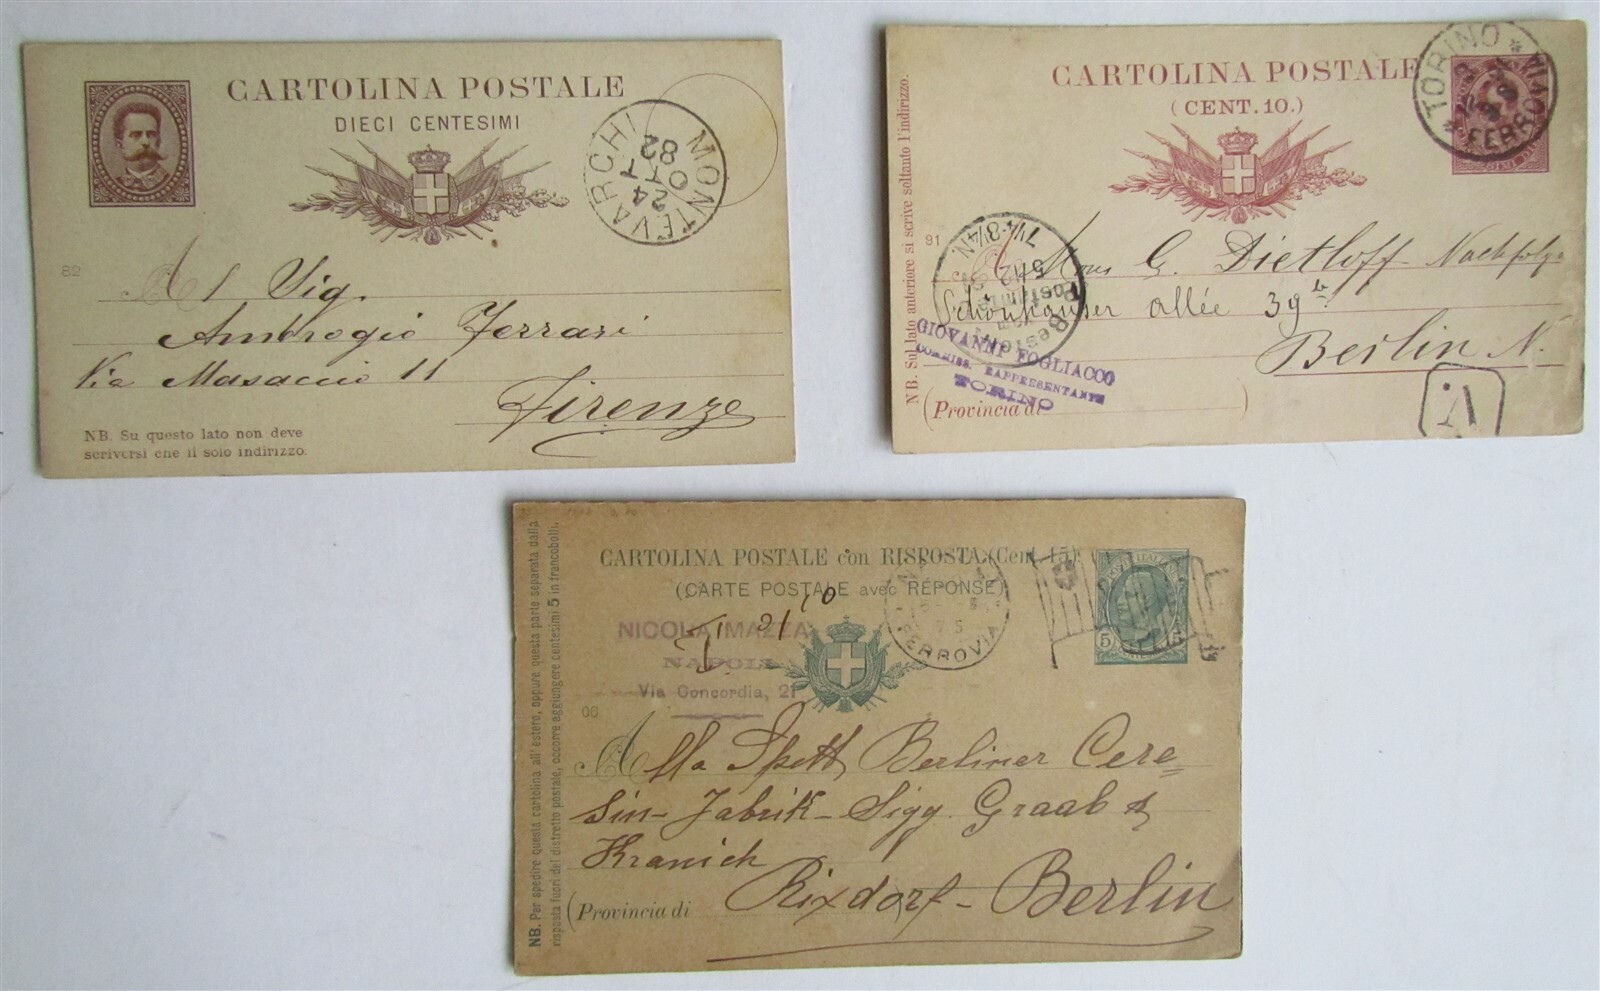 CARTOLINA POSTALE
DIECI CENTESIMI
MONTEVARCHI
24
OTT
82
82
Al Sig.
Ambrogio Ferrari
Via Masaccio 11
Firenze
NB. Su questo lato non deve
scriversi che il solo indirizzo.
CARTOLINA POSTALE
(CENT. 10.)
TORINO
FERROVIA
NB. Sul lato anteriore si scrive soltanto l'indirizzo.
91
A Mons G. Dietloff Nachfolge
Schönhauser allée 39b
Berlin N.
Bestellt
Postamte
5/12
7¼-8¼N.
GIOVANNI FOGLIACCO
COMMISS. RAPPRESENTANTE
TORINO
(Provincia di )
CARTOLINA POSTALE con RISPOSTA (Cent. 15)
(CARTE POSTALE avec RÉPONSE)
NICOLA MAZZA
NAPOLI
Via Concordia, 21
FERROVIA
5 5
06
NB. Per spedire questa cartolina all'estero, oppure questa parte separata dalla
risposta fuori del distretto postale, occorre aggiungere centesimi 5 in francobolli.
Alla Spett Berliner Cere=
sin-Fabrik-Sigg. Graab &
Kranich
(Provincia di Rixdorf-Berlin